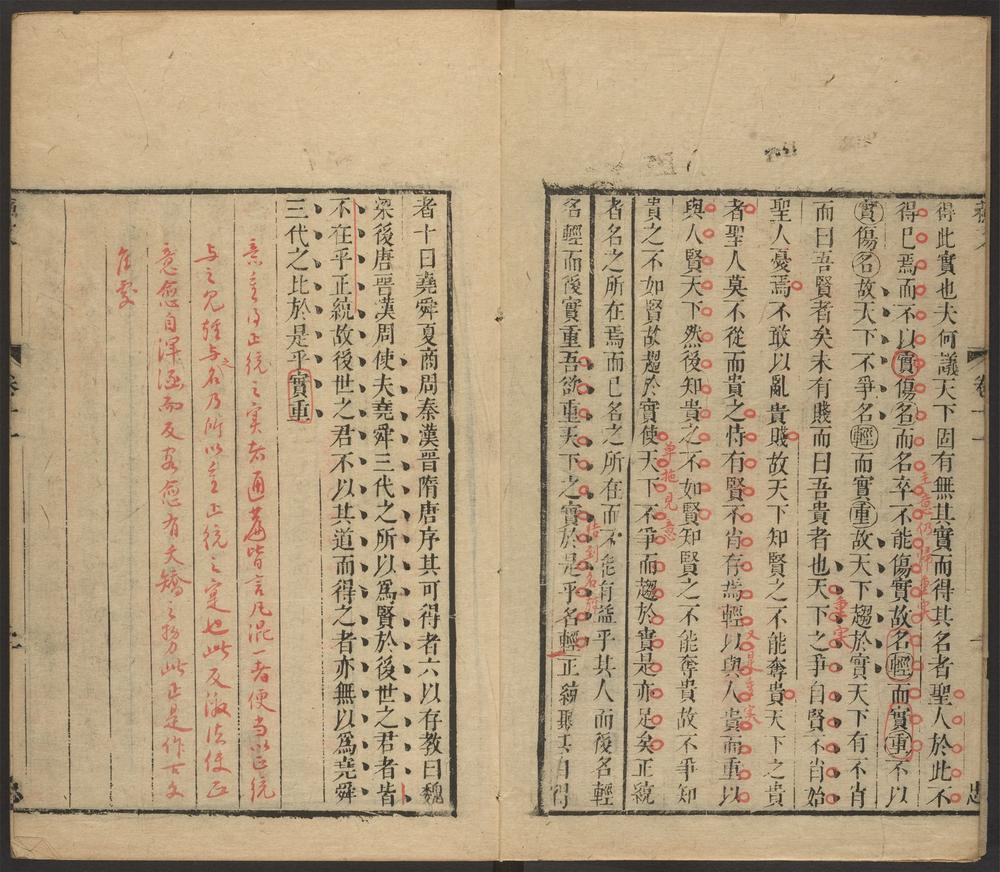 得此實也夫何議天下固有無其實而得其名者聖人於此不
得已焉而不以實傷名而名卒不能傷實故名輕而實重不以
實傷名故天下不爭名輕而實重故天下趨於實天下有不肖
而曰吾賢者矣未有賤而曰吾貴者也天下之爭自賢不肖始
聖人憂焉不敢以亂貴賤故天下知賢之不能奪貴天下之貴
者聖人莫不從而貴之恃有賢不肖存焉輕以與人貴而重以
與人賢天下然後知貴之不如賢知賢之不能奪貴故不爭知
貴之不如賢故趨於實使天下不爭而趨於實是亦足矣正統
者名之所在焉而已名之所在而不能有益乎其人而後名輕
名輕而後實重吾欲重天下之實於是乎名輕正統聽其自得
主意仍歸重實
重實
又是重實
單拖見意
者十曰堯舜夏商周秦漢晉隋唐序其可得者六以存教曰魏
梁後唐晉漢周使夫堯舜三代之所以為賢於後世之君者皆
不在乎正統故後世之君不以其道而得之者亦無以為堯舜
三代之比於是乎實重
意主得正統之實者通篇皆言凡混一者便當以正統
與之見輕與之名乃所以重正統之實也此反激法使正
意愈自深涵而反客愈有夭矯之勢此正是作古文